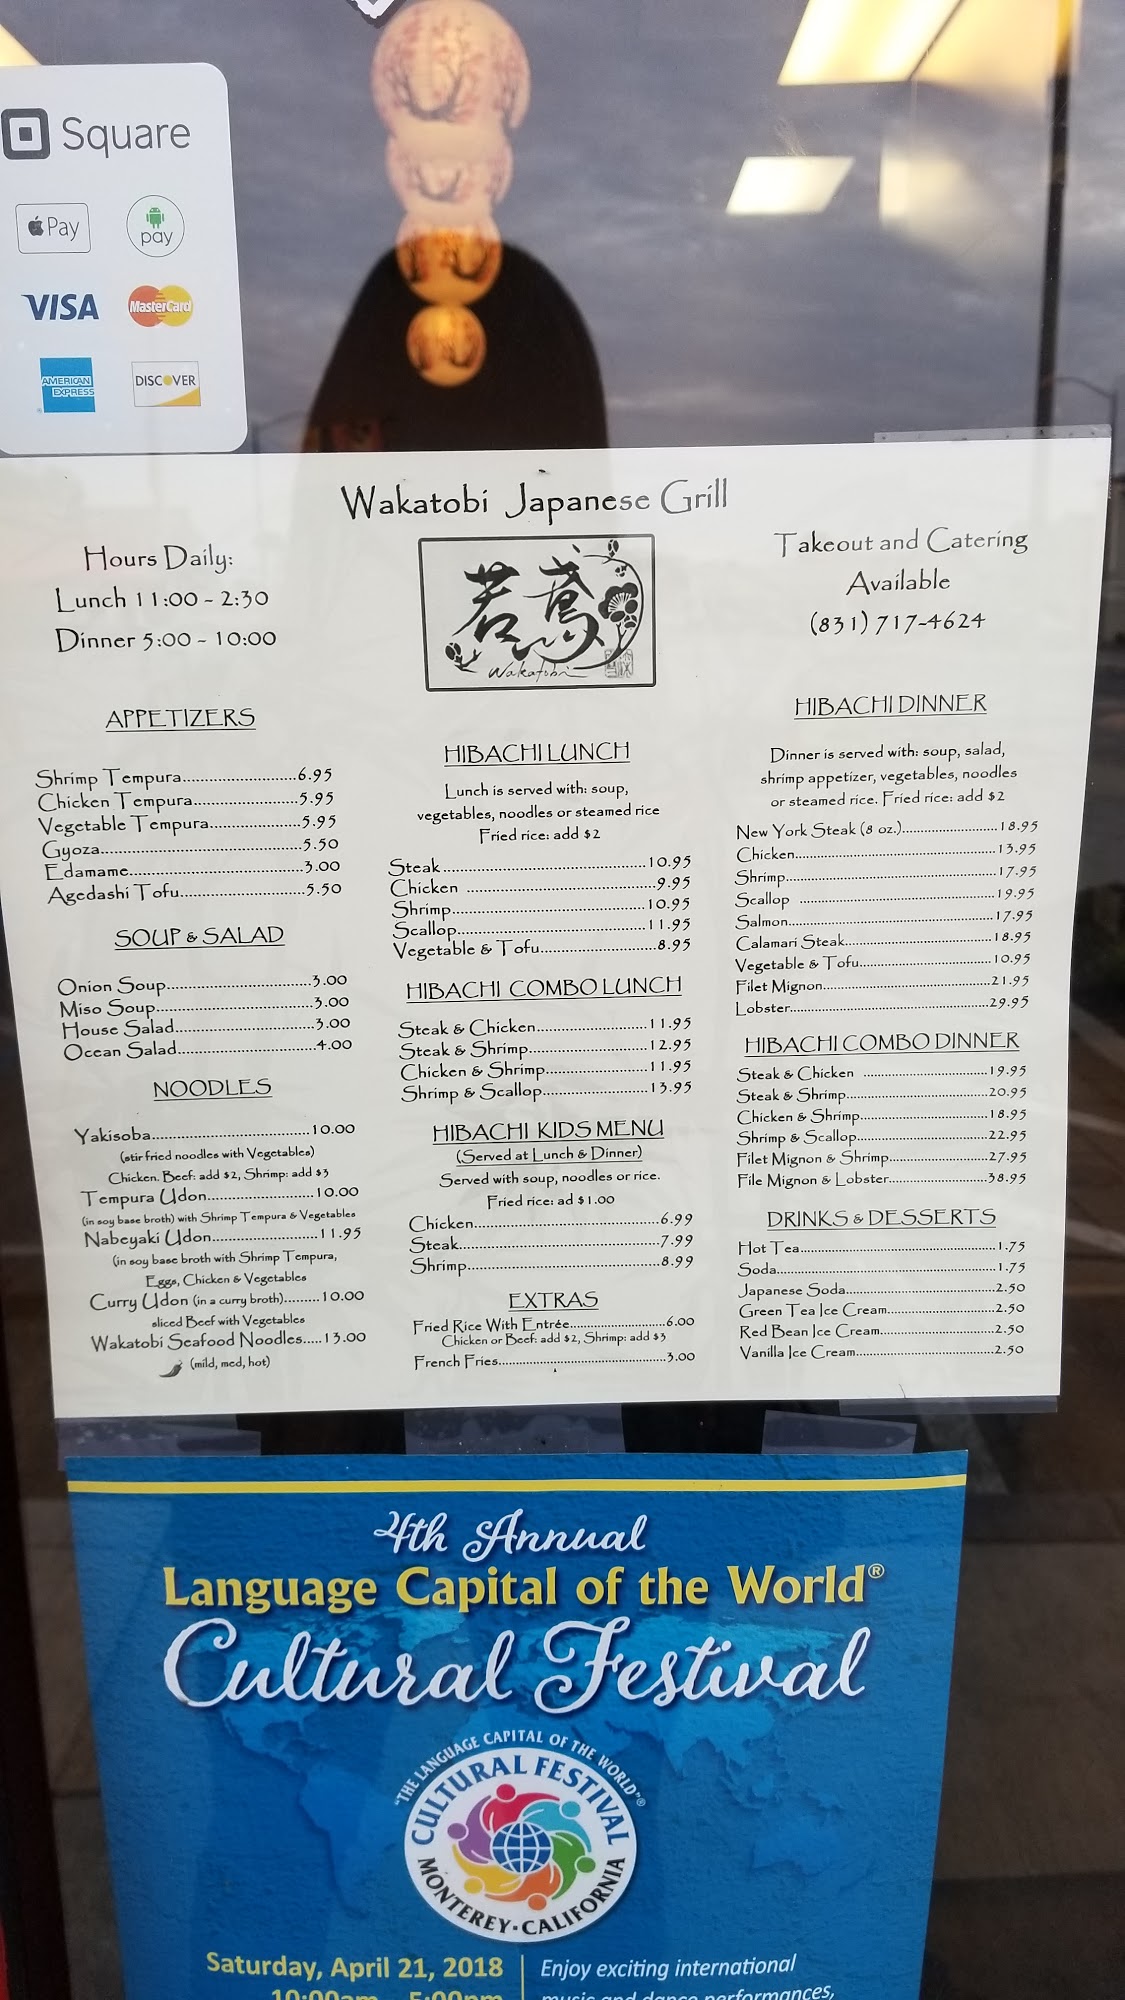 Square
Pay
pay
VISA
MasterCard
AMERICAN EXPRESS
DISCOVER
Wakatobi Japanese Grill
Hours Daily:
Lunch 11:00 - 2:30
Dinner 5:00 - 10:00
若鳶
Wakatobi
Takeout and Catering
Available
(831) 717-4624
APPETIZERS
Shrimp Tempura..........................6.95
Chicken Tempura........................5.95
Vegetable Tempura.....................5.95
Gyoza...............................................5.50
Edamame........................................3.00
Agedashi Tofu.............................5.50
SOUP & SALAD
Onion Soup.................................3.00
Miso Soup....................................3.00
House Salad................................3.00
Ocean Salad................................4.00
NOODLES
Yakisoba....................................10.00
(stir fried noodles with Vegetables)
Chicken. Beef: add $2, Shrimp: add $3
Tempura Udon........................10.00
(in soy base broth) with Shrimp Tempura & Vegetables
Nabeyaki Udon........................11.95
(in soy base broth with Shrimp Tempura,
Eggs, Chicken & Vegetables
Curry Udon (in a curry broth).........10.00
sliced Beef with Vegetables
Wakatobi Seafood Noodles.....13.00
(mild, med, hot)
HIBACHI LUNCH
Lunch is served with: soup,
vegetables, noodles or steamed rice
Fried rice: add $2
Steak...............................................10.95
Chicken ............................................9.95
Shrimp.............................................10.95
Scallop............................................11.95
Vegetable & Tofu...........................8.95
HIBACHI COMBO LUNCH
Steak & Chicken..........................11.95
Steak & Shrimp............................12.95
Chicken & Shrimp........................11.95
Shrimp & Scallop.........................13.95
HIBACHI KIDS MENU
(Served at Lunch & Dinner)
Served with soup, noodles or rice.
Fried rice: ad $1.00
Chicken..........................................6.99
Steak..............................................7.99
Shrimp............................................8.99
EXTRAS
Fried Rice With Entrée......................6.00
Chicken or Beef: add $2, Shrimp: add $3
French Fries.......................................3.00
HIBACHI DINNER
Dinner is served with: soup, salad,
shrimp appetizer, vegetables, noodles
or steamed rice. Fried rice: add $2
New York Steak (8 oz.)........................18.95
Chicken..................................................13.95
Shrimp....................................................17.95
Scallop ..................................................19.95
Salmon...................................................17.95
Calamari Steak.....................................18.95
Vegetable & Tofu.................................10.95
Filet Mignon..........................................21.95
Lobster..................................................29.95
HIBACHI COMBO DINNER
Steak & Chicken ...............................19.95
Steak & Shrimp...................................20.95
Chicken & Shrimp...............................18.95
Shrimp & Scallop................................22.95
Filet Mignon & Shrimp........................27.95
File Mignon & Lobster........................38.95
DRINKS & DESSERTS
Hot Tea.................................................1.75
Soda......................................................1.75
Japanese Soda.....................................2.50
Green Tea Ice Cream..........................2.50
Red Bean Ice Cream............................2.50
Vanilla Ice Cream..................................2.50
4th Annual
Language Capital of the World®
Cultural Festival
"THE LANGUAGE CAPITAL OF THE WORLD"®
CULTURAL FESTIVAL
MONTEREY·CALIFORNIA
Saturday, April 21, 2018
10:00am - 5:00pm
Enjoy exciting international
music and dance performances,